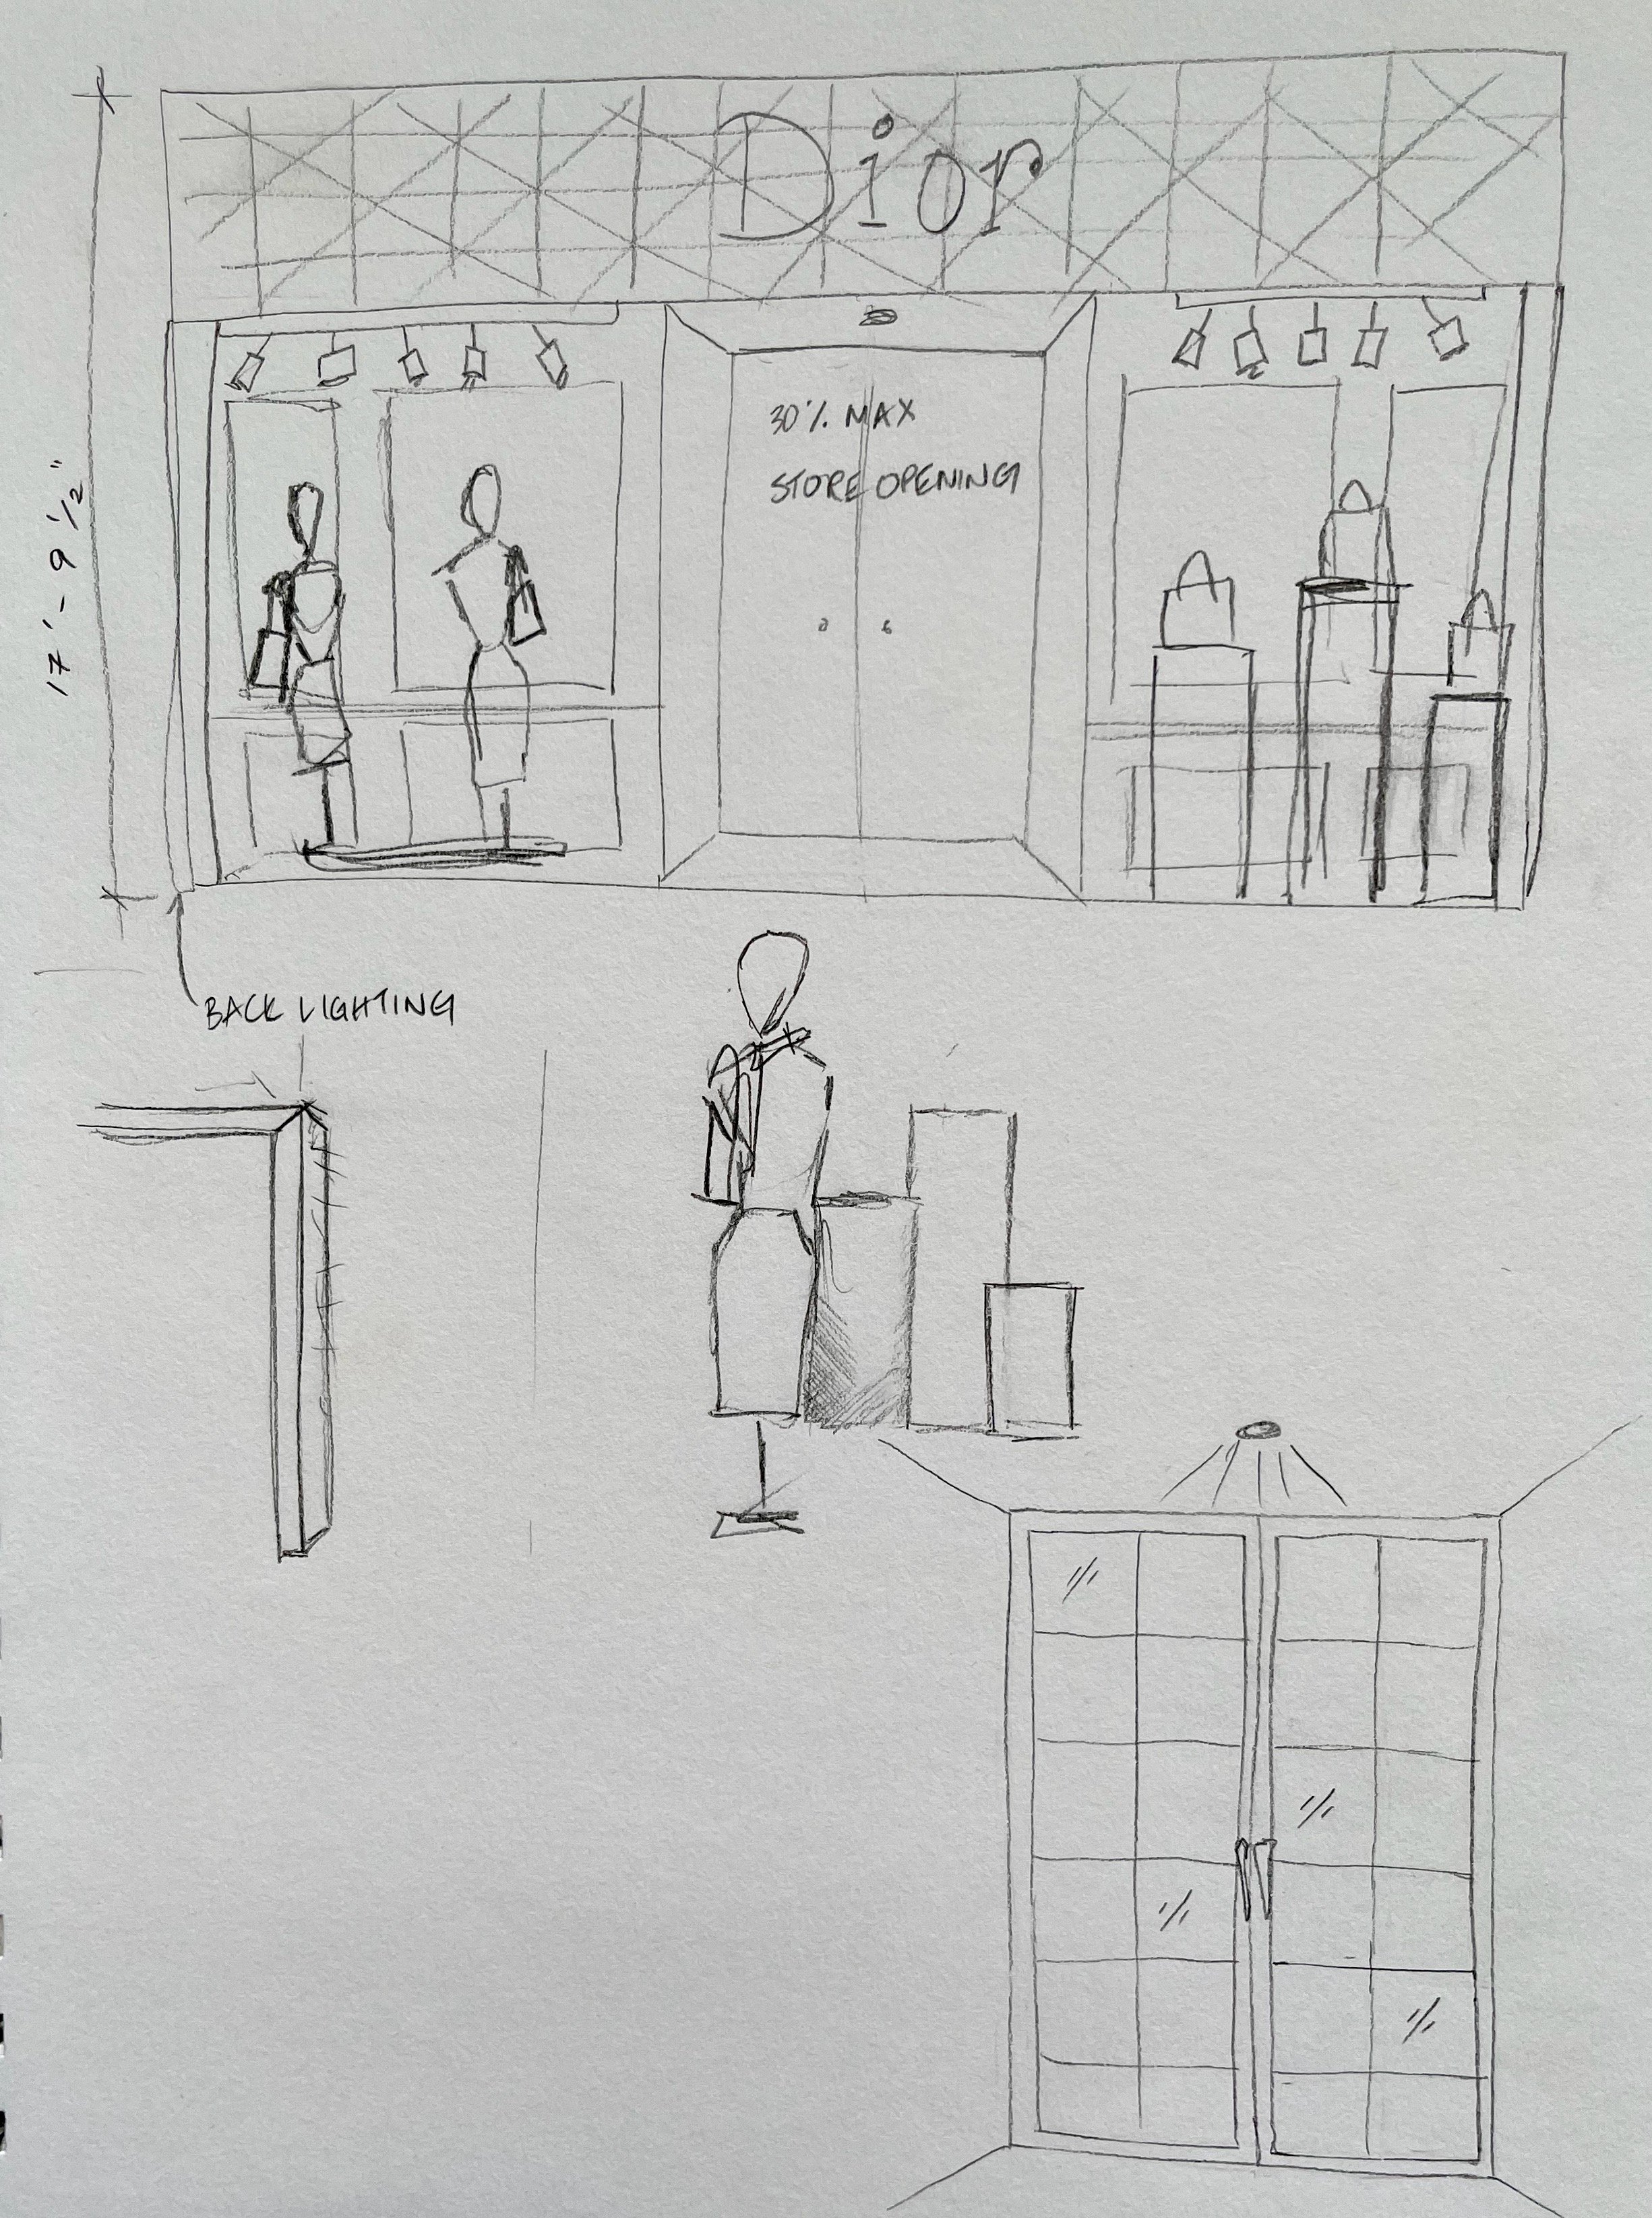 Dior
30% MAX
STORE OPENING
17'-9 1/2"
BACK LIGHTING